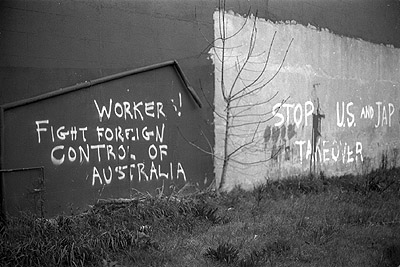 WORKER !
FIGHT FOREIGN
CONTROL OF
AUSTRALIA
STOP U.S. AND JAP
TAKEOVER